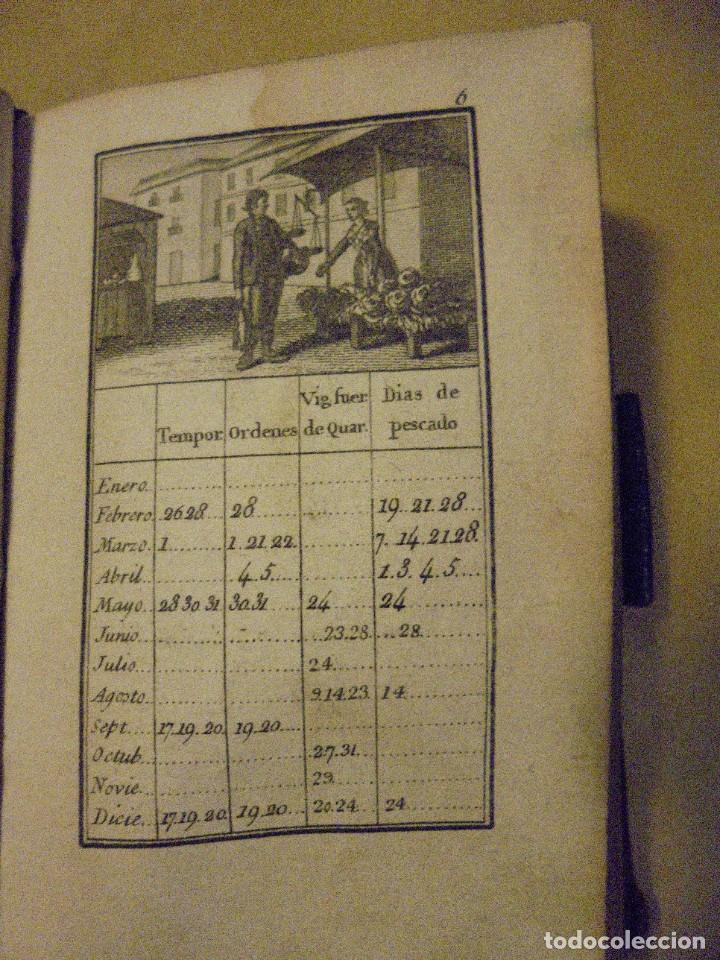 6
Tempor. Ordenes Vig. fuer. de Quar. Dias de pescado
Enero
Febrero 26 28 28 19. 21. 28
Marzo 1 1. 21. 22 7. 14. 21. 28.
Abril 4. 5 1. 3. 4. 5
Mayo 28 30. 31 30. 31 24 24
Junio 23. 28 28
Julio 24
Agosto 9. 14. 23 14
Sept. 17. 19. 20 19. 20
Octub. 27. 31
Novie. 29
Dicie. 17. 19. 20 19. 20 20. 24 24
todocoleccion